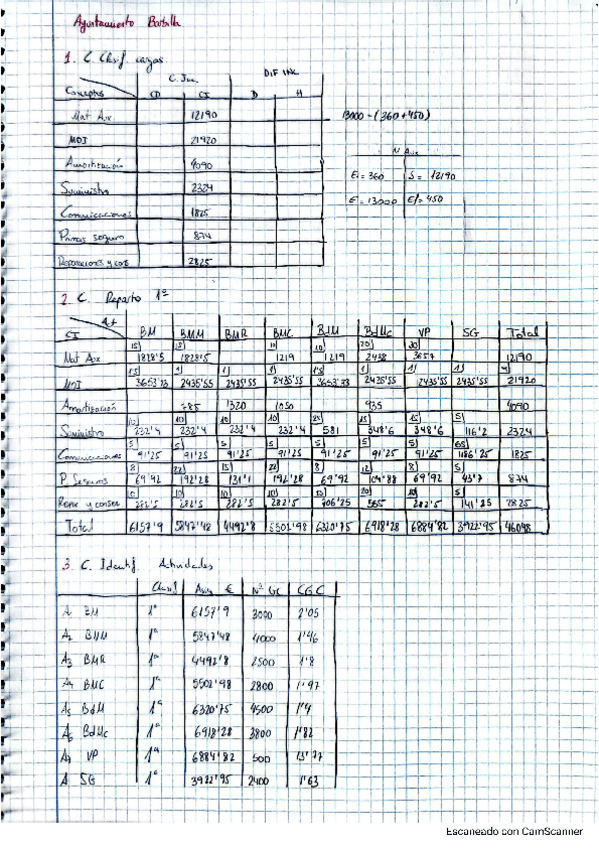 Ayuntamiento Batalla
1. C. Clasif. cargas
C. Jus. DIF INC
Conceptos CD CI D H
Mat Aux 12190 13000 - (360+450)
MOI 21920
M Aux
Amortización 4090
Ei = 360 S = 12190
Suministro 2324
E = 13000 Ef = 450
Comunicaciones 1825
Primas seguro 874
Reparaciones y cos 2825
2. C. Reparto 1º
CI Act BM BMM BMR BMC BdM BdMc VP SG Total
15 15 10 10 20 30
Mat Aux 1828'5 1828'5 1219 1219 2438 3657 12190
1'5 1 1 1 1'5 1 1 1
MOI 3653'33 2435'55 2435'55 2435'55 3653'33 2435'55 2435'55 2435'55 21920
Amortización 785 1320 1050 935 4090
10 10 10 10 25 15 15 5
Suministro 232'4 232'4 232'4 232'4 581 348'6 348'6 116'2 2324
5 5 5 5 5 5 5 65
Comunicaciones 91'25 91'25 91'25 91'25 91'25 91'25 91'25 1186'25 1825
8 22 15 22 8 12 8 5
P Seguros 69'92 192'28 131'1 192'28 69'92 104'88 69'92 43'7 874
10 10 10 10 25 20 10 5
Repar y conser 282'5 282'5 282'5 282'5 706'25 565 282'5 141'25 2825
Total 6157'9 5847'48 4492'8 5501'98 6320'75 6918'28 6884'82 3922'95 46048
3. C. Identif. Actividades
Clasif Aux € Nº GC CGC
A1 BM 1ª 6157'9 3000 2'05
A2 BMM 1ª 5847'48 4000 1'46
A3 BMR 1ª 4492'8 2500 1'8
A4 BMC 1ª 5501'98 2800 1'97
A5 BdM 1ª 6320'75 4500 1'4
A6 BdMc 1ª 6918'28 3800 1'82
A7 VP 1ª 6884'82 500 13'77
A SG 1ª 3922'95 2400 1'63
Escaneado con CamScanner